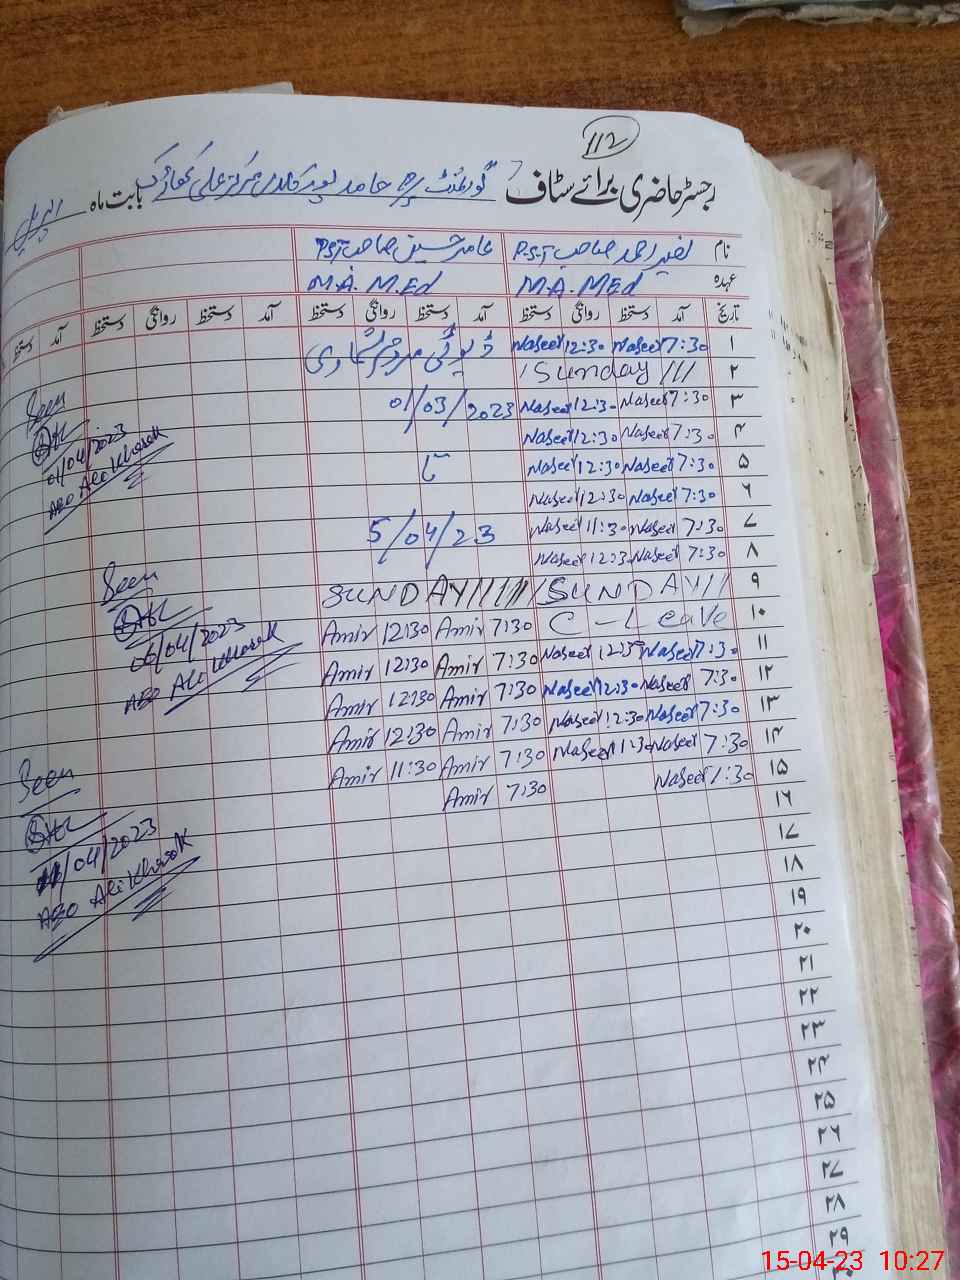 112
رجسٹر حاضری برائے سٹاف گورنمنٹ حامد پور بابت ماہ اپریل
نام نصیر احمد صاحب P.S.T عامر حسین صاحب P.S.T
عہدہ M.A. M.Ed M.A. M.Ed
تاریخ آمد دستخط روانگی دستخط آمد دستخط روانگی دستخط آمد دستخط روانگی دستخط آمد دستخط
۱ 7:30 Naseer 12:30 Naseer ڈیوٹی مردم شماری
۲ Sunday ///
۳ 7:30 Naseer 12:30 Naseer 01/03/2023
۴ 7:30 Naseer 12:30 Naseer
۵ 7:30 Naseer 12:30 Naseer تا
۶ 7:30 Naseer 12:30 Naseer
۷ 7:30 Naseer 11:30 Naseer 5/04/23
۸ 7:30 Naseer 12:30 Naseer
۹ SUNDAY// SUNDAY//////
۱۰ C-Leave 7:30 Amir 12:30 Amir
۱۱ 7:30 Naseer 12:30 Naseer 7:30 Amir 12:30 Amir
۱۲ 7:30 Naseer 12:30 Naseer 7:30 Amir 12:30 Amir
۱۳ 7:30 Naseer 12:30 Naseer 7:30 Amir 12:30 Amir
۱۴ 7:30 Naseer 11:30 Naseer 7:30 Amir 11:30 Amir
۱۵ 7:30 Naseer 7:30 Amir
۱۶
۱۷
۱۸
۱۹
۲۰
۲۱
۲۲
۲۳
۲۴
۲۵
۲۶
۲۷
۲۸
۲۹
۳۰
Seen
01/04/2023
AEO Ali Kharak
Seen
06/04/2023
AEO Ali Kharak
Seen
11/04/2023
AEO Ali Kharak
15-04-23 10:27